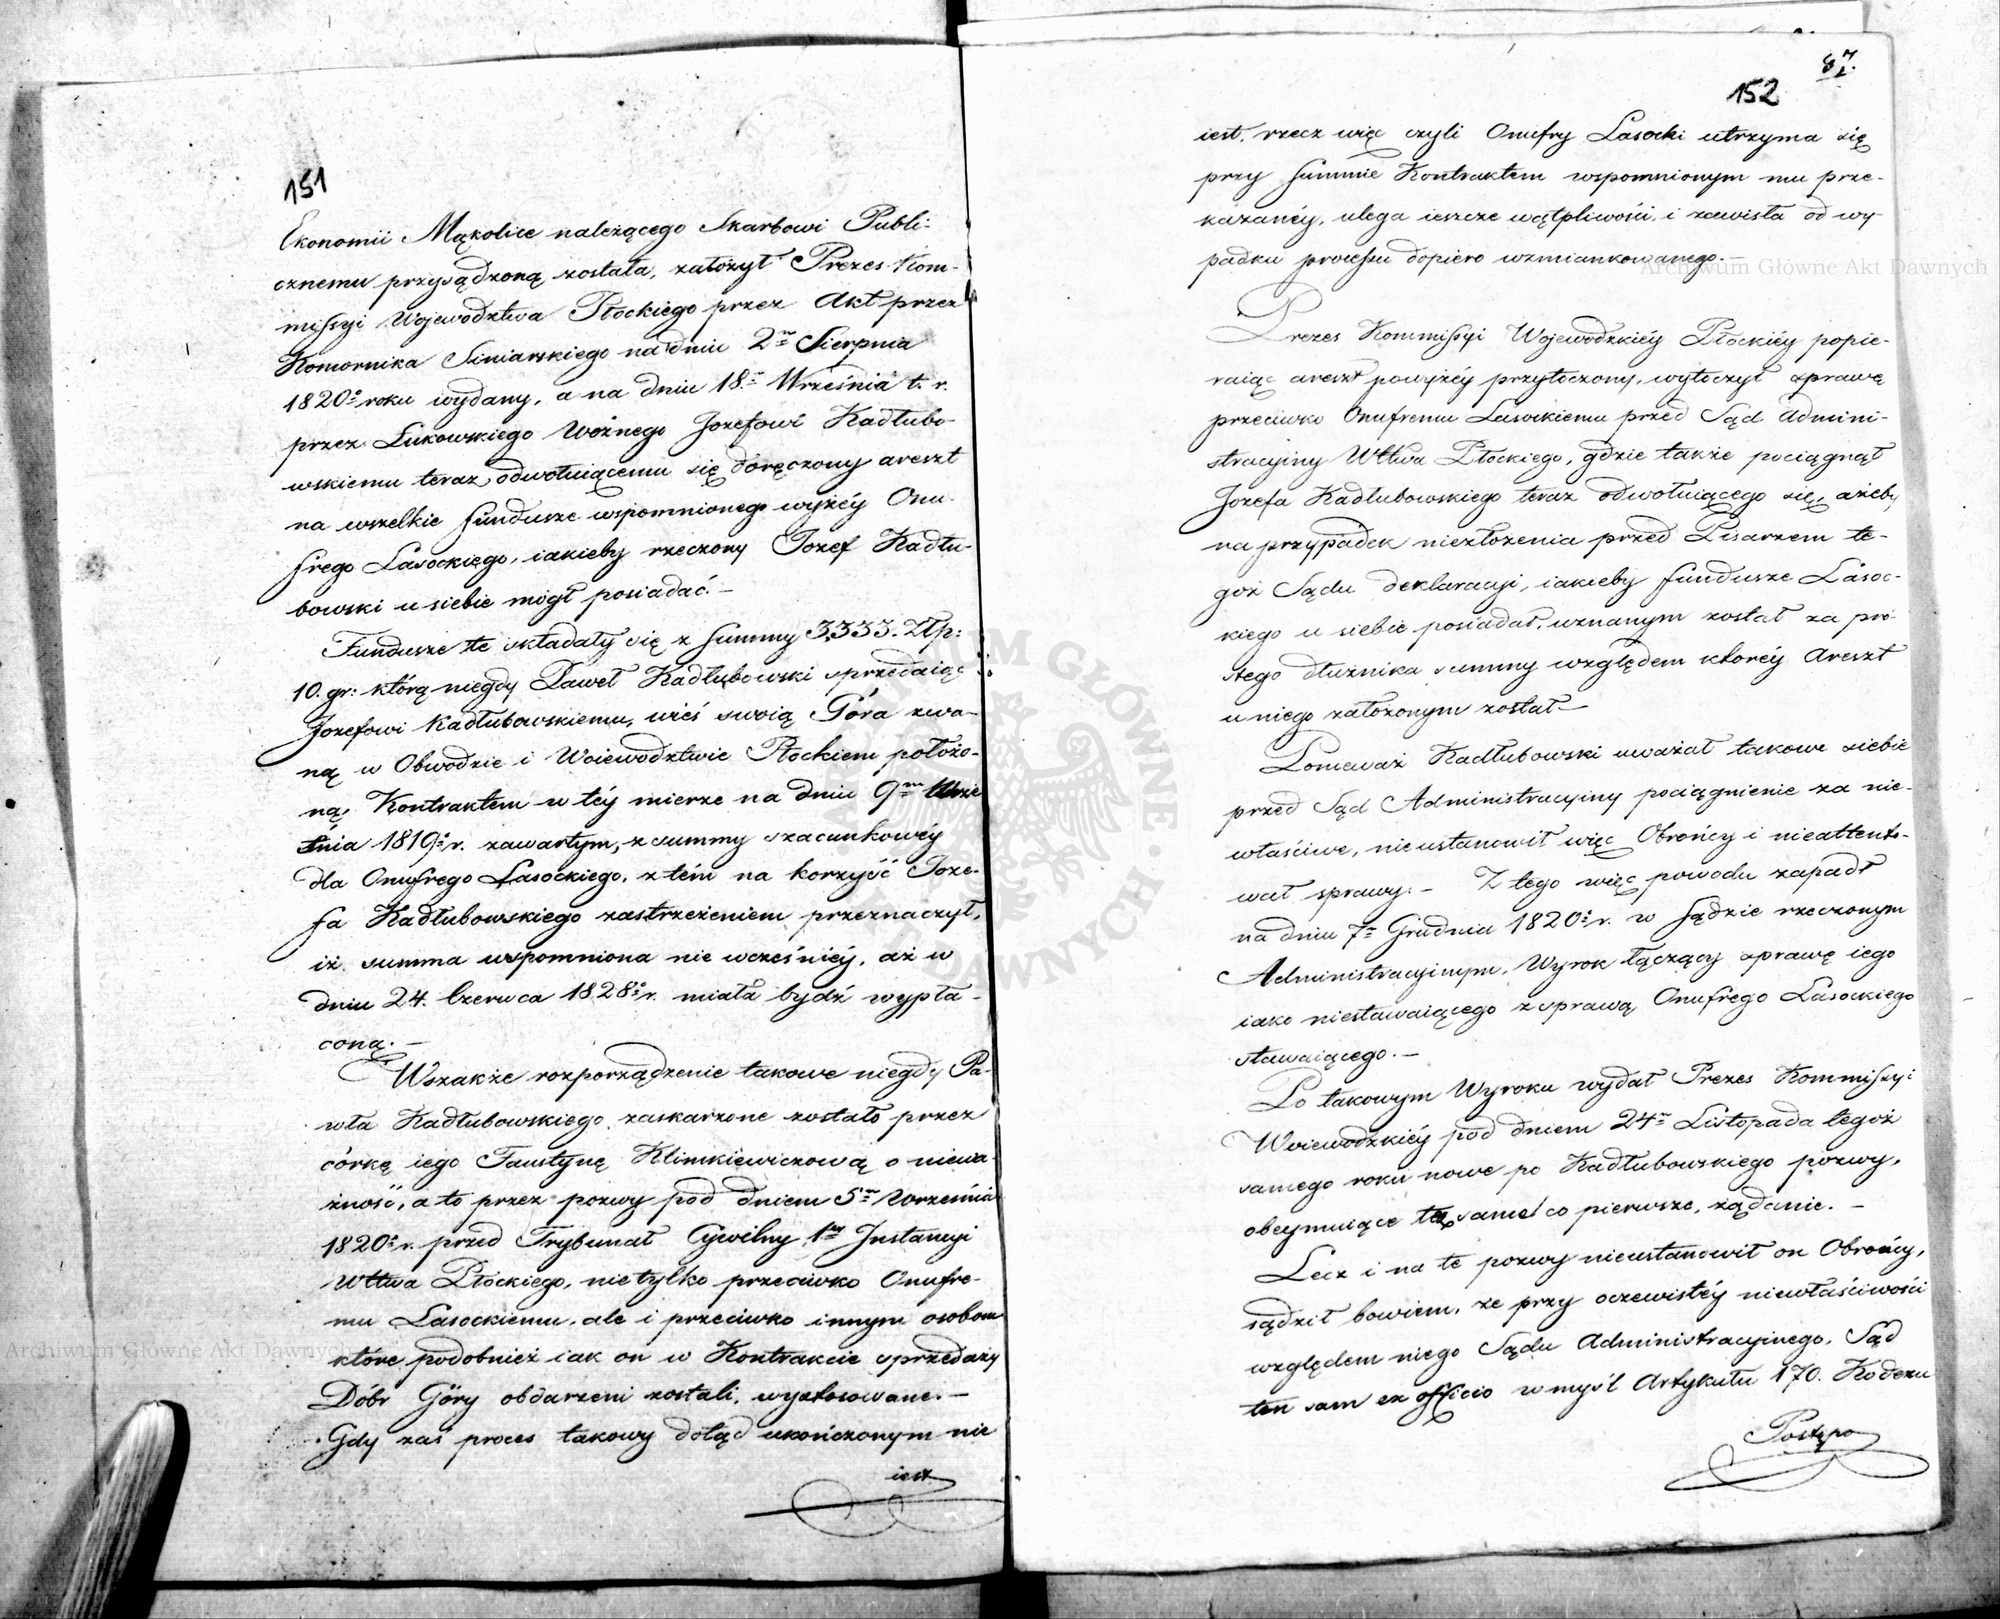 151
Ekonomii Mąkolice należącego Skarbowi Publi-
cznemu przysądzoną została, założył Prezes Kom-
missyi Województwa Płockiego przez Akt przez
Komornika Siniarskiego na dniu 2m Sierpnia
1820o roku wydany, a na dniu 18m Września t. r.
przez Łukowskiego Woźnego Jozefowi Kadłubo-
wskiemu teraz odwołuiącemu się doręczony areszt
na wszelkie fundusze wspomnionego wyżéy Onu-
frego Lasockiego, iakieby rzeczony Jozef Kadłu-
bowski u siebie mógł posiadać. –
Fundusze te składały się z summy 3,333. Złp:
10. gr: którą niegdy Paweł Kadłubowski sprzedaiąc
Jozefowi Kadłubowskiemu, wieś swoią Góra zwa-
ną w Obwodzie i Woiewództwie Płockiem położo-
ną, Kontraktem w téy mierze na dniu 9m Wrze
śnia 1819o r. zawartym, z summy szacunkowéy
dla Onufrego Lasockiego, z tém na korzyść Joze-
fa Kadłubowskiego zastrzeżeniem przeznaczył,
iż summa wspomniona nie wcześniéy, aż w
dniu 24. Czerwca 1828o r. miała bydź wypła-
coną. –
Wszakże rozporządzenie takowe niegdy Pa-
wła Kadłubowskiego zaskarżone zostało przez
córkę iego Faustynę Klimkiewiczową o niewa-
żność, a to przez pozwy pod dniem 5m Września
1820o r. przed Trybunał Cywilny 1ey Instancyi
Wttwa Płockiego, nietylko przeciwko Onufre-
mu Lasockiemu, ale i przeciwko innym osobom
które podobnież iak on w Kontrakcie sprzedaży
Dóbr Góry obdarzeni zostali, wystosowane. –
Gdy zaś proces takowy dotąd ukończonym nie
iest
87.
152
iest, rzecz więc czyli Onufry Lasocki utrzyma się
przy summie Kontraktem wspomnionym mu prze-
kazanéy, ulega ieszcze wątpliwości i zawisła od wy-
padku processu dopiero wzmiankowanego. –
Prezes Kommissyi Wojewodzkiéy Płockiéy popie-
raiąc areszt powyżéy przytoczony, wytoczył sprawę
przeciwko Onufremu Lasockiemu przed Sąd Admini-
stracyiny Wttwa Płockiego, gdzie także pociągnął
Jozefa Kadłubowskiego teraz odwołuiącego się, ażeby
na przypadek niezłożenia przed Pisarzem te-
goż Sądu deklaracyi, iakieby fundusze Lasoc-
kiego u siebie posiadał, uznanym został za pro-
stego dłużnika summy względem któréy Areszt
u niego założonym został –
Ponieważ Kadłubowski uważał takowe siebie
przed Sąd Administracyiny pociągnienie za nie-
właściwe, nieustanowił więc Obrońcy i nieattento-
wał sprawy. – Z tego więc powodu zapadł
na dniu 7m Grudnia 1820o r. w Sądzie rzeczonym
Administracyinym, Wyrok łączący sprawę iego
iako niestawaiącego z sprawą Onufrego Lasockiego
stawaiącego. –
Po takowym Wyroku wydał Prezes Kommissyi
Woiewodzkiéy pod dniem 24m Listopada tegoż
samego roku nowe po Kadłubowskiego pozwy,
obeymuiące toż samo co pierwsze, żądanie. –
Lecz i na te pozwy nieustanowił on Obrońcy,
sądził bowiem, że przy oczewistéy niewłaściwości
względem niego Sądu Administracyinego, Sąd
ten sam ex officio w myśl Artykułu 170. Kodexu
Postępo
Archiwum Główne Akt Dawnych
Archiwum Główne Akt Dawnych
ARCHIWUM GŁÓWNE AKT DAWNYCH